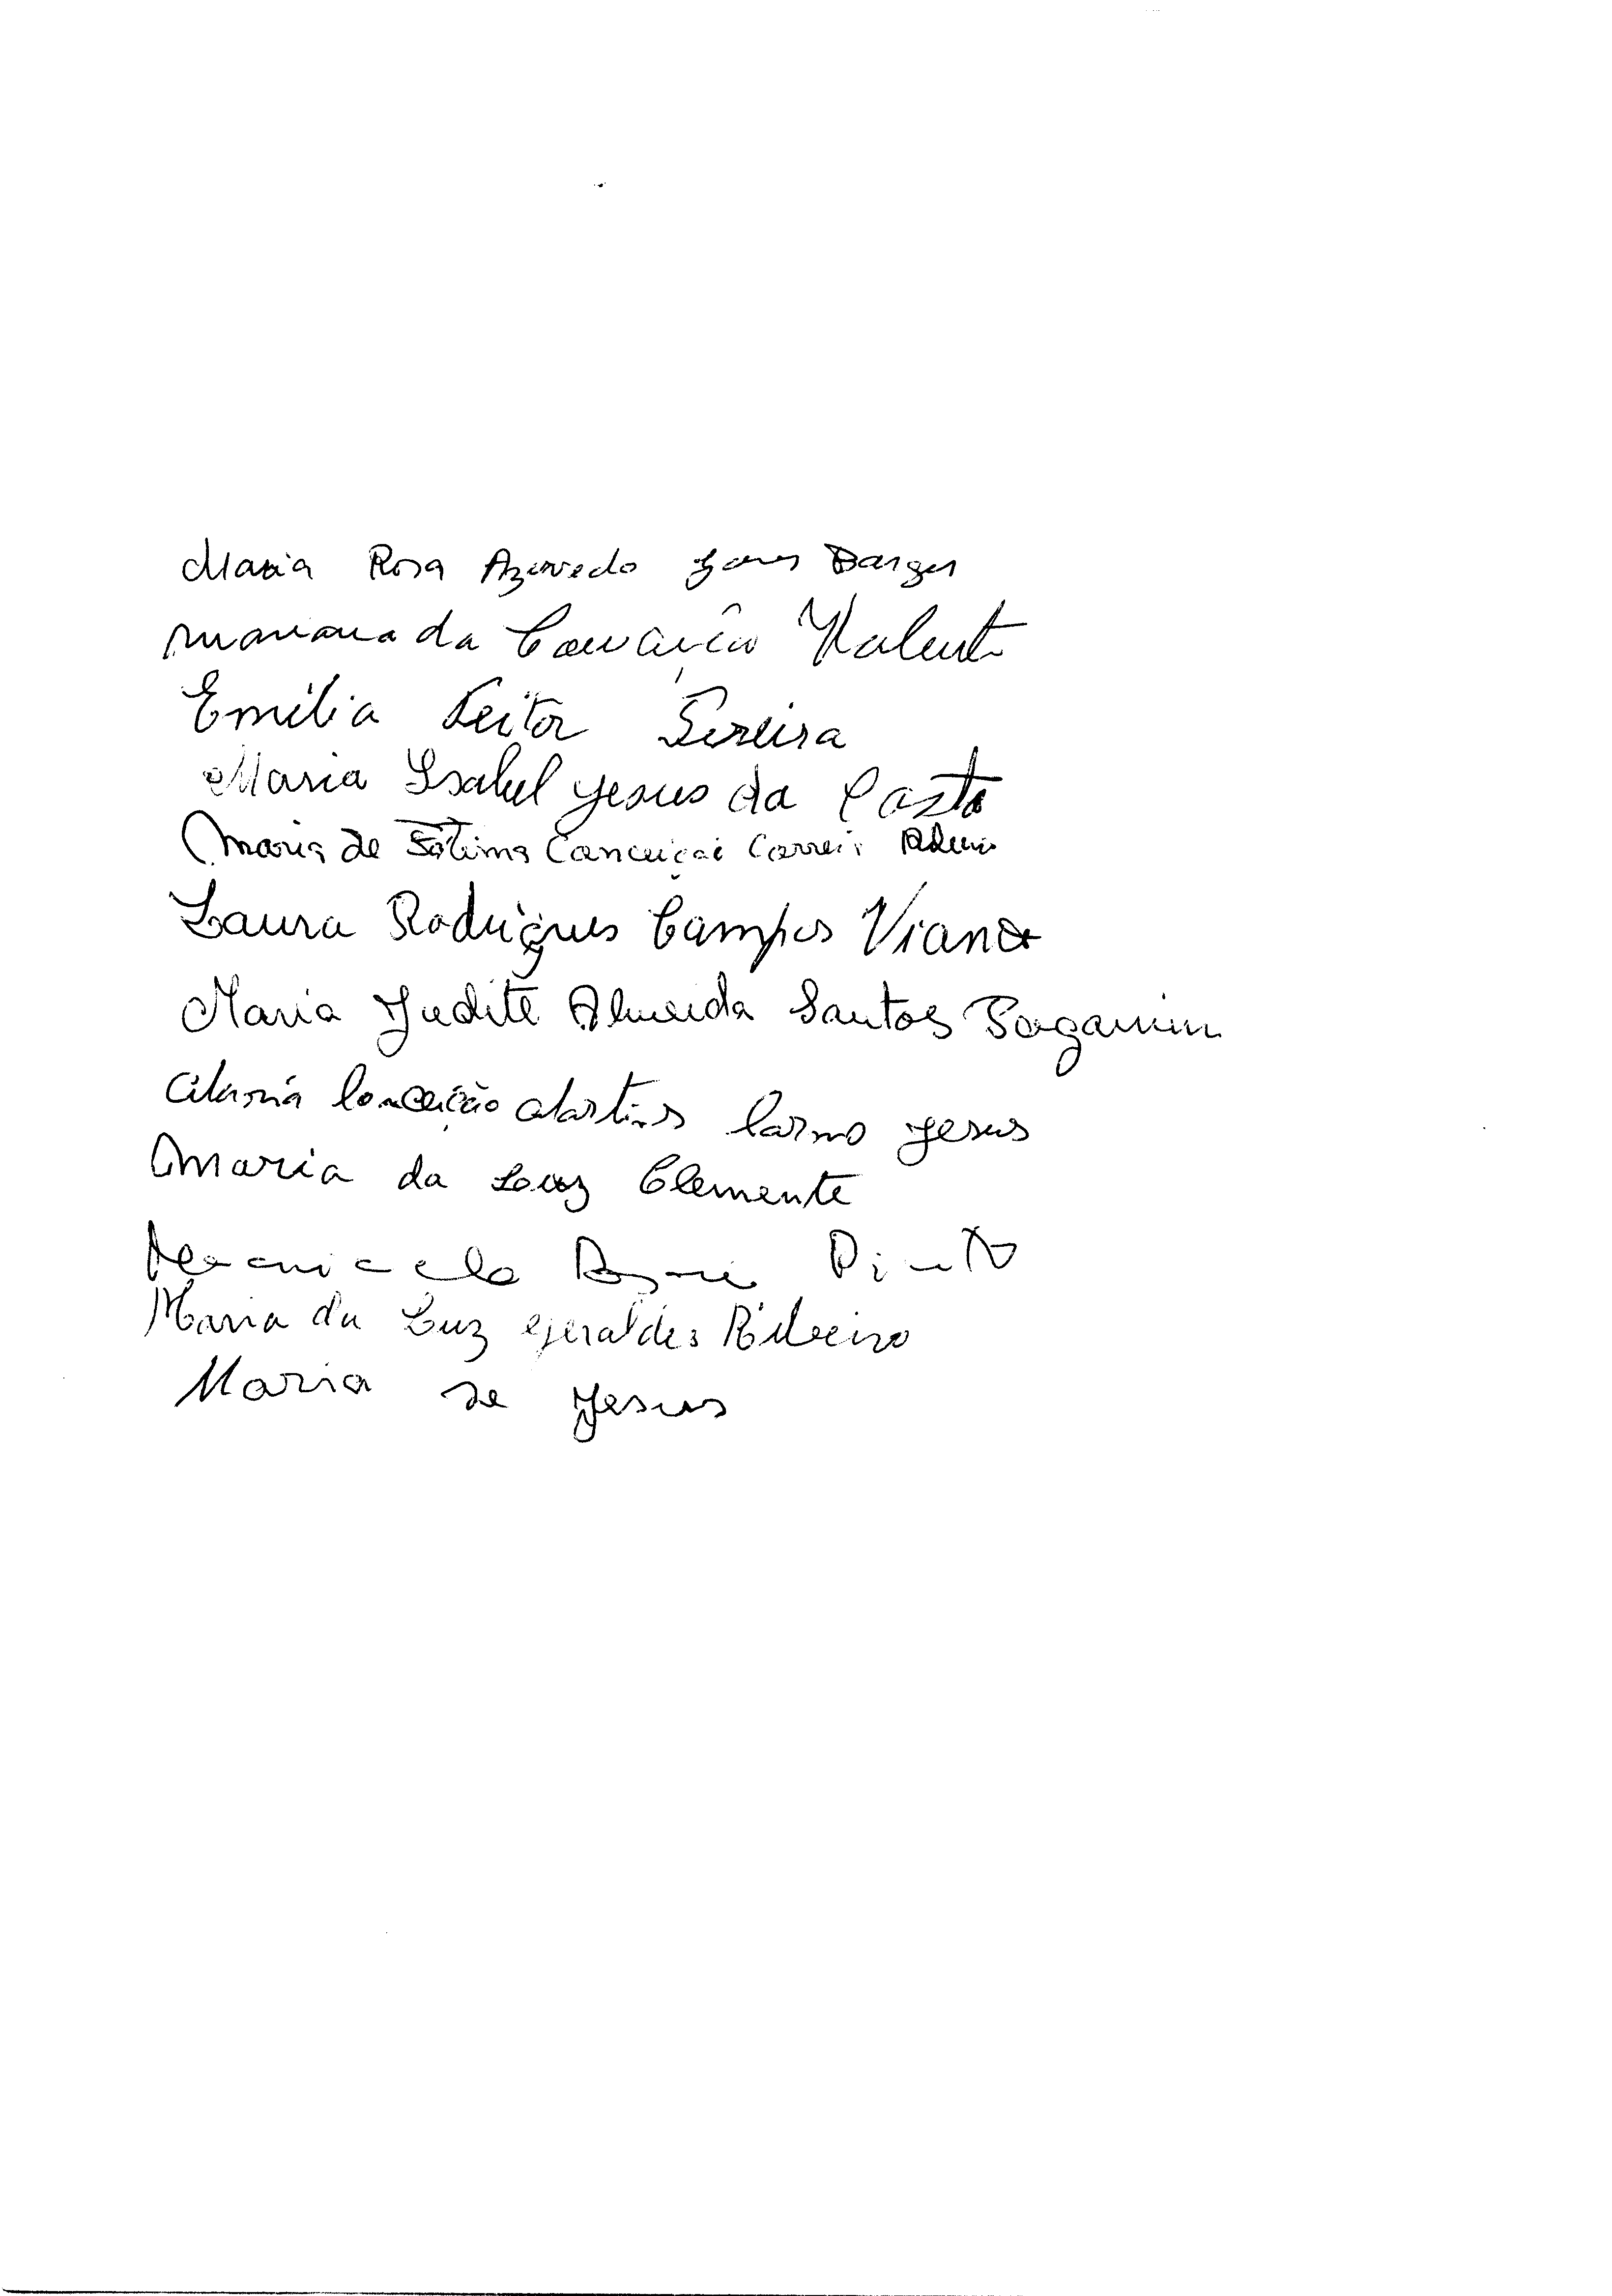 Maria Rosa Azevedo Borges
Mariana da Conceição Valente
Emilia Leitor Pereira
Maria Isabel Jesus da Costa
Maria de Fátima Conceição Correia Ribeiro
Laura Rodrigues Campos Viana
Maria Judite Almeida Santos
Maria Conceição Martins Carmo Jesus
Maria da Luz Clemente
Pinto
Maria da Luz Geraldes Ribeiro
Maria de Jesus